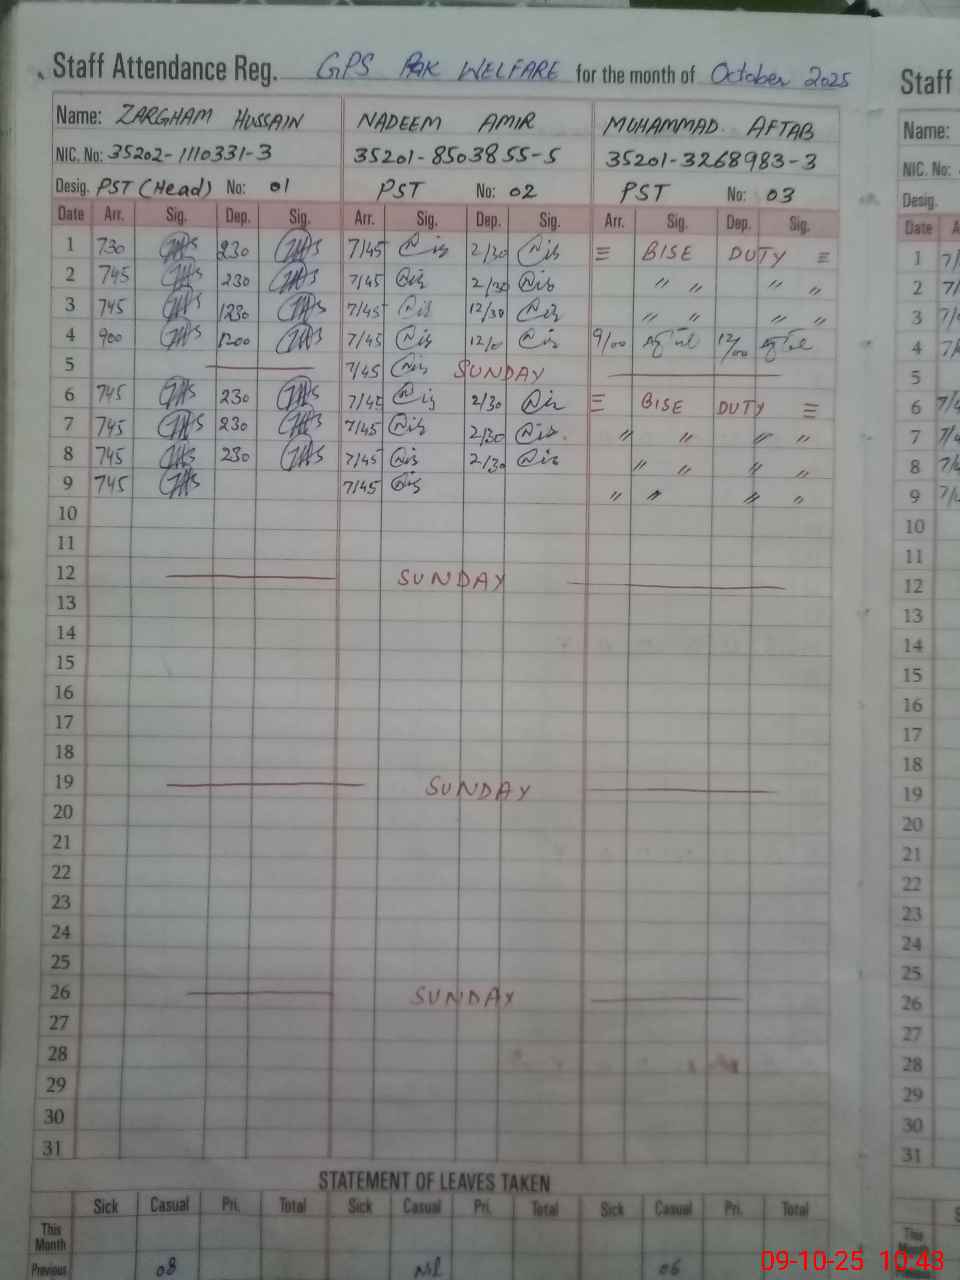 Staff Attendance Reg. GPS PAK WELFARE for the month of October 2025
Staff
Name: ZARGHAM HUSSAIN NADEEM AMIR MUHAMMAD. AFTAB
Name:
NIC. No: 35202-1110331-3 35201-8503855-5 35201-3268983-3
NIC. No:
Desig. PST (Head) No: 01 PST No: 02 PST No: 03
Desig.
Date Arr. Sig. Dep. Sig. Arr. Sig. Dep. Sig. Arr. Sig. Dep. Sig.
Date A
1 730 230 7/45 2/30 BISE DUTY
1 7/
2 745 230 7/45 2/30 〃 〃 〃 〃
2 7/
3 745 1230 7/45 12/30 〃 〃 〃 〃
3 7/
4 900 1200 7/45 12/0 9/00 12/00
4 7/
5 7/45 SUNDAY
5
6 745 230 7/45 2/30 BISE DUTY
6 7/4
7 745 230 7/45 2/30 〃 〃 〃 〃
7 7/4
8 745 230 7/45 2/30 〃 〃 〃 〃
8 7/4
9 745 7/45 〃 〃 〃 〃
9 7/4
10
10
11
11
12 SUNDAY
12
13
13
14
14
15
15
16
16
17
17
18
18
19 SUNDAY
19
20
20
21
21
22
22
23
23
24
24
25
25
26 SUNDAY
26
27
27
28
28
29
29
30
30
31
31
STATEMENT OF LEAVES TAKEN
Sick Casual Pri. Total Sick Casual Pri. Total Sick Casual Pri. Total
This Month
This Month
Previous 08 Nil 06
09-10-25 10:43